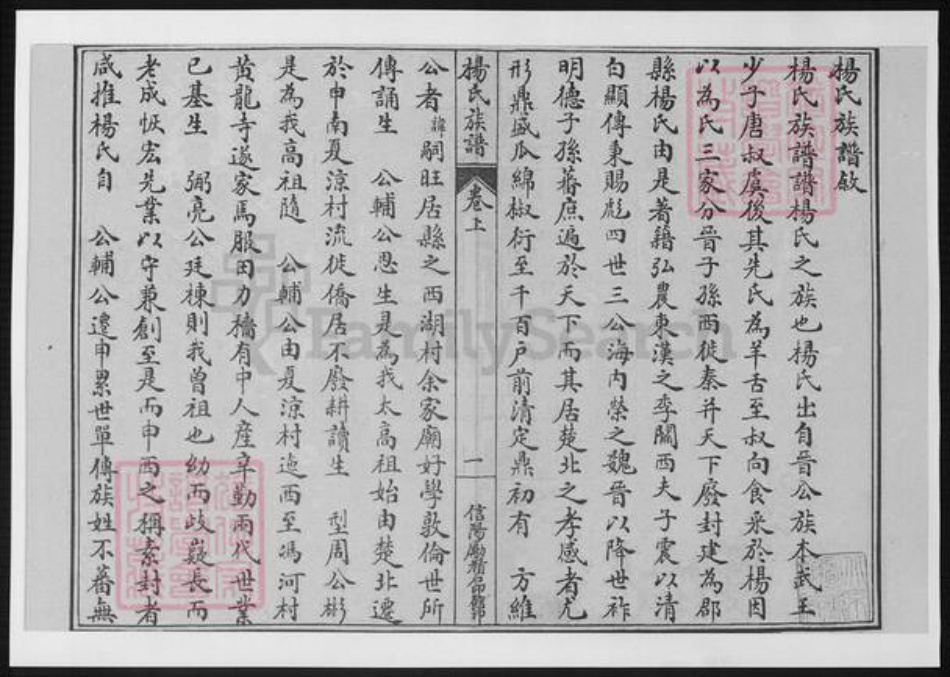 楊氏族譜敘
楊氏族譜譜楊氏之族也楊氏出自晉公族本武王
少子唐叔虞後其先氏為羊舌至叔向食采於楊因
以為氏三家分晉子孫西徙秦并天下廢封建為郡
縣楊氏由是著籍弘農東漢之季關西夫子震以清
白顯傳秉賜彪四世三公海內榮之魏晉以降世祚
明德子孫蕃庶遍於天下而其居楚北之孝感者尤
形鼎盛瓜綿椒衍至千百戶前清定鼎初有 方維
楊氏族譜 卷上 一 信陽
公者諱嗣旺居縣之西湖村余家廟好學敦倫世所
傳誦生 公輔公恩生是為我太高祖始由楚北遷
於申南夏涼村流徙僑居不廢耕讀生 型周公彬
是為我高祖隨 公輔公由夏涼村迤西至馮河村
黃龍寺遂家焉服田力穡有中人產辛勤兩代世業
已基生 弼亮公廷棟則我曾祖也幼而歧嶷長而
老成恢宏先業以守兼創至是而申西之稱素封者
咸推楊氏自 公輔公遷申累世單傳族姓不蕃無
FamilySearch